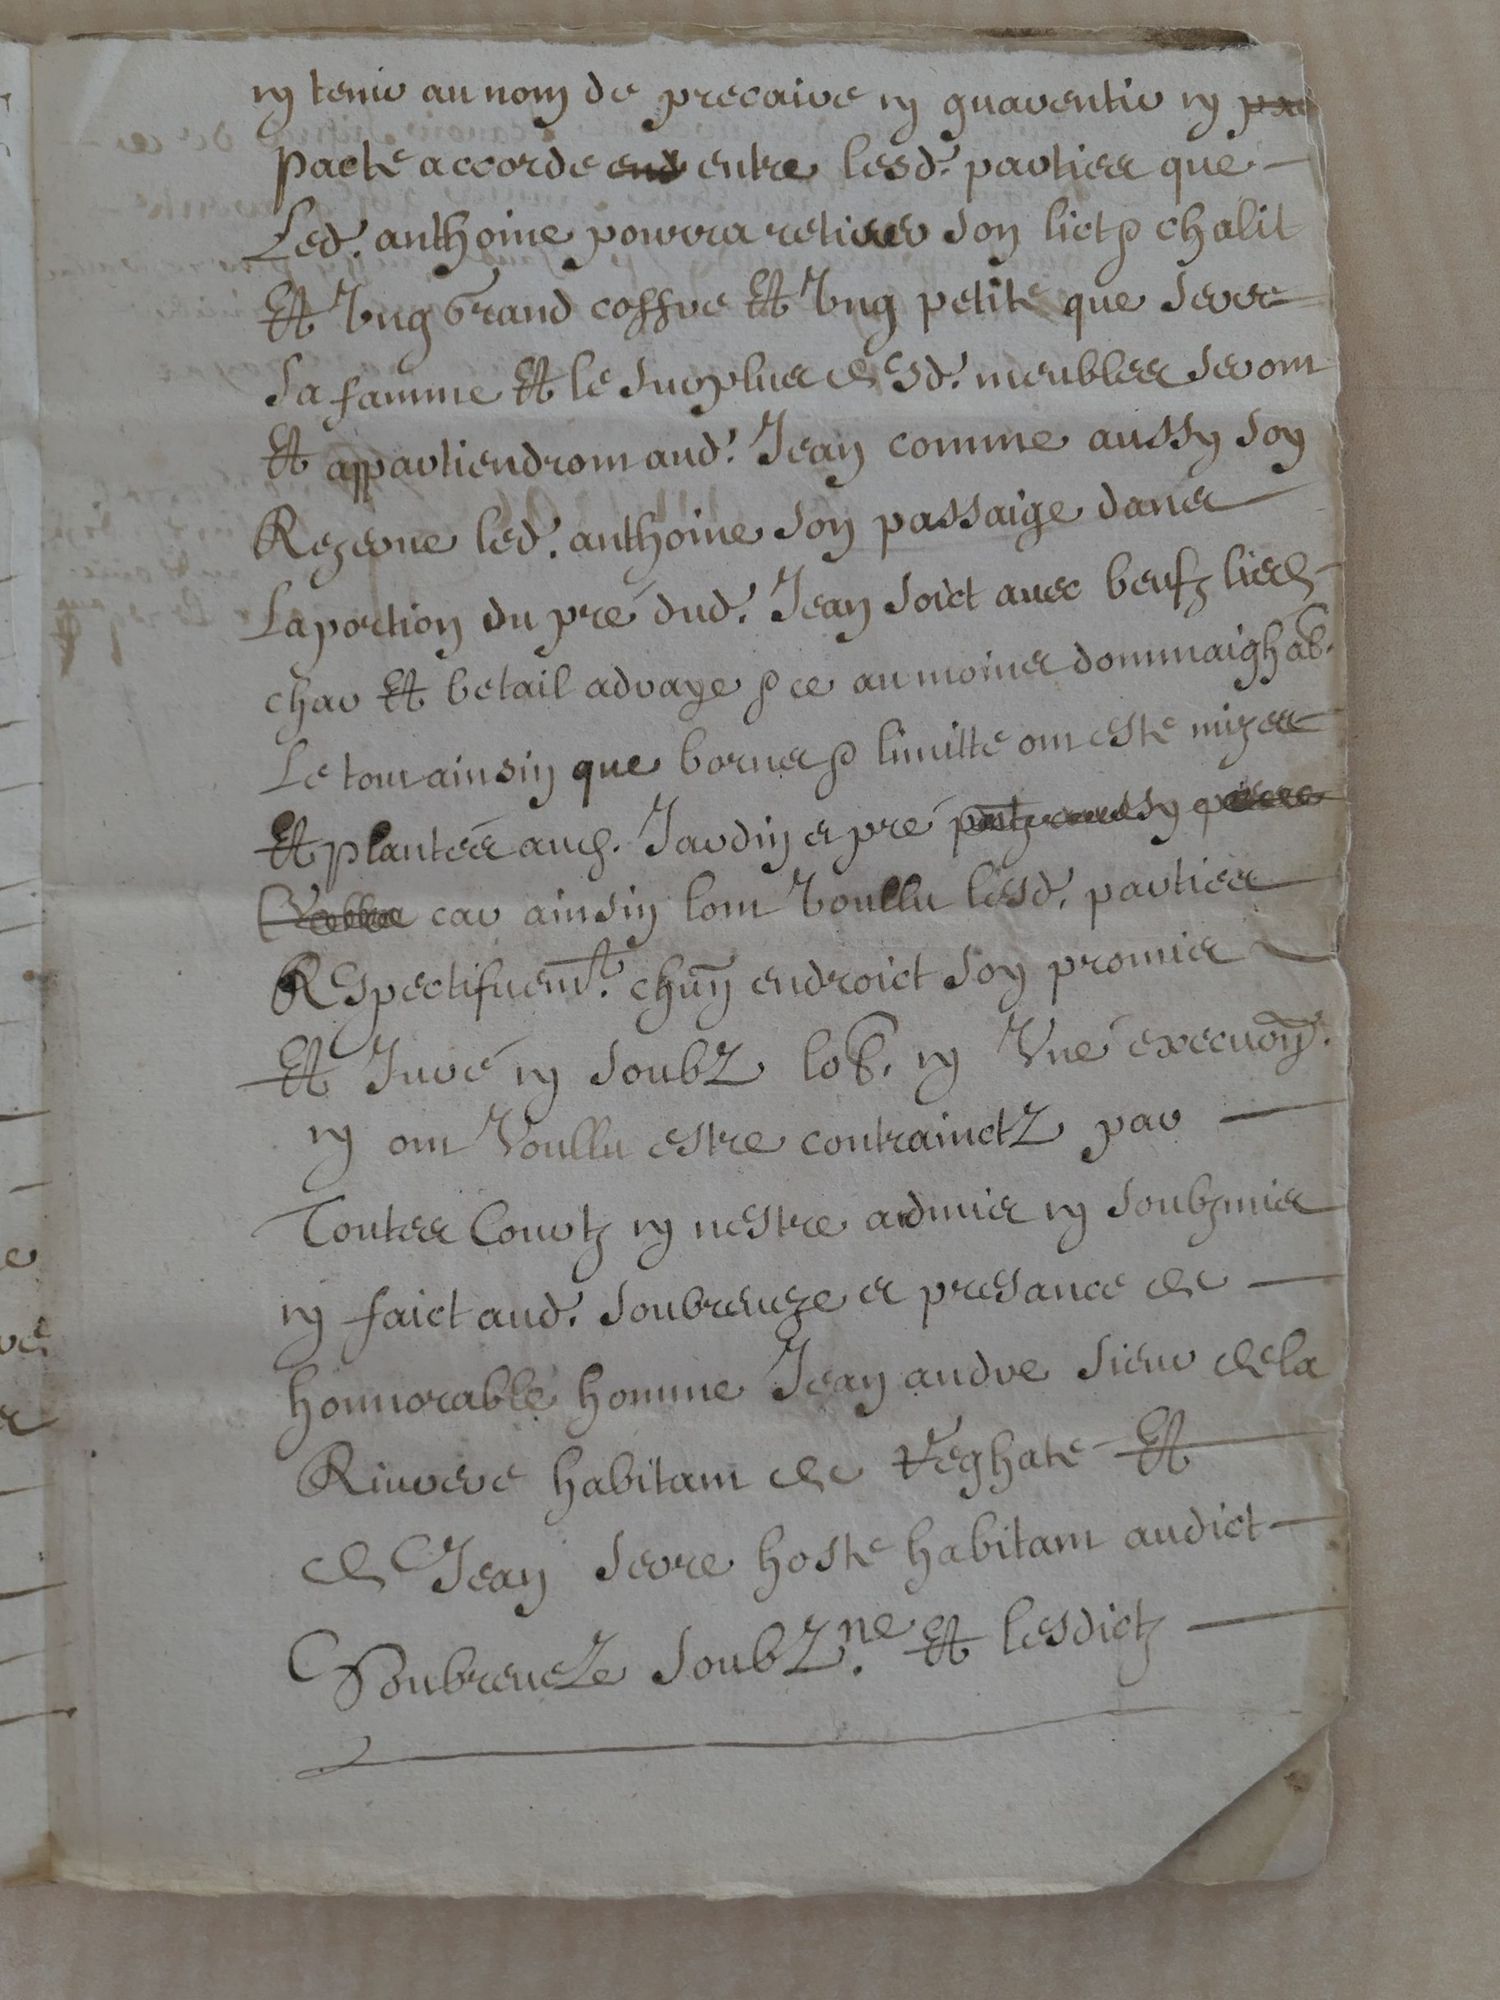 et tenir au nom de precaire et guarentir et
pacte accorde entre lesd. parties que
Led. anthoine pourra retirer son lict & chalit
Et Ung Grand coffre Et Ung petite que sera
sa famme Et le surplus desd. meubles seront
Et appartiendront aud. Jean comme aussy soy
Rezerve led. anthoine son passaige dans
La portion du pré dud. Jean soict avec beufz liés
char Et betail & ce au moins dommaigh ab.
Le tout ainsin que bornes & limitte ont esté mizes
Et plantées aud. Jardin et pré
car ainsin lont Voullu lesd. parties
Respectifuemt. chun endroict soy promis
Et Juré et soubz lob. et Vné
et ont Voullu estre contrainctz par
Toutes Courtz et
et faict aud. soubreveze es presance de
honnorable homme Jean andre sieur de la
Rivvere habitant de Veghate Et
de Jean serre hoste habitant audict
Soubreveze soubzne. Et lesdictz